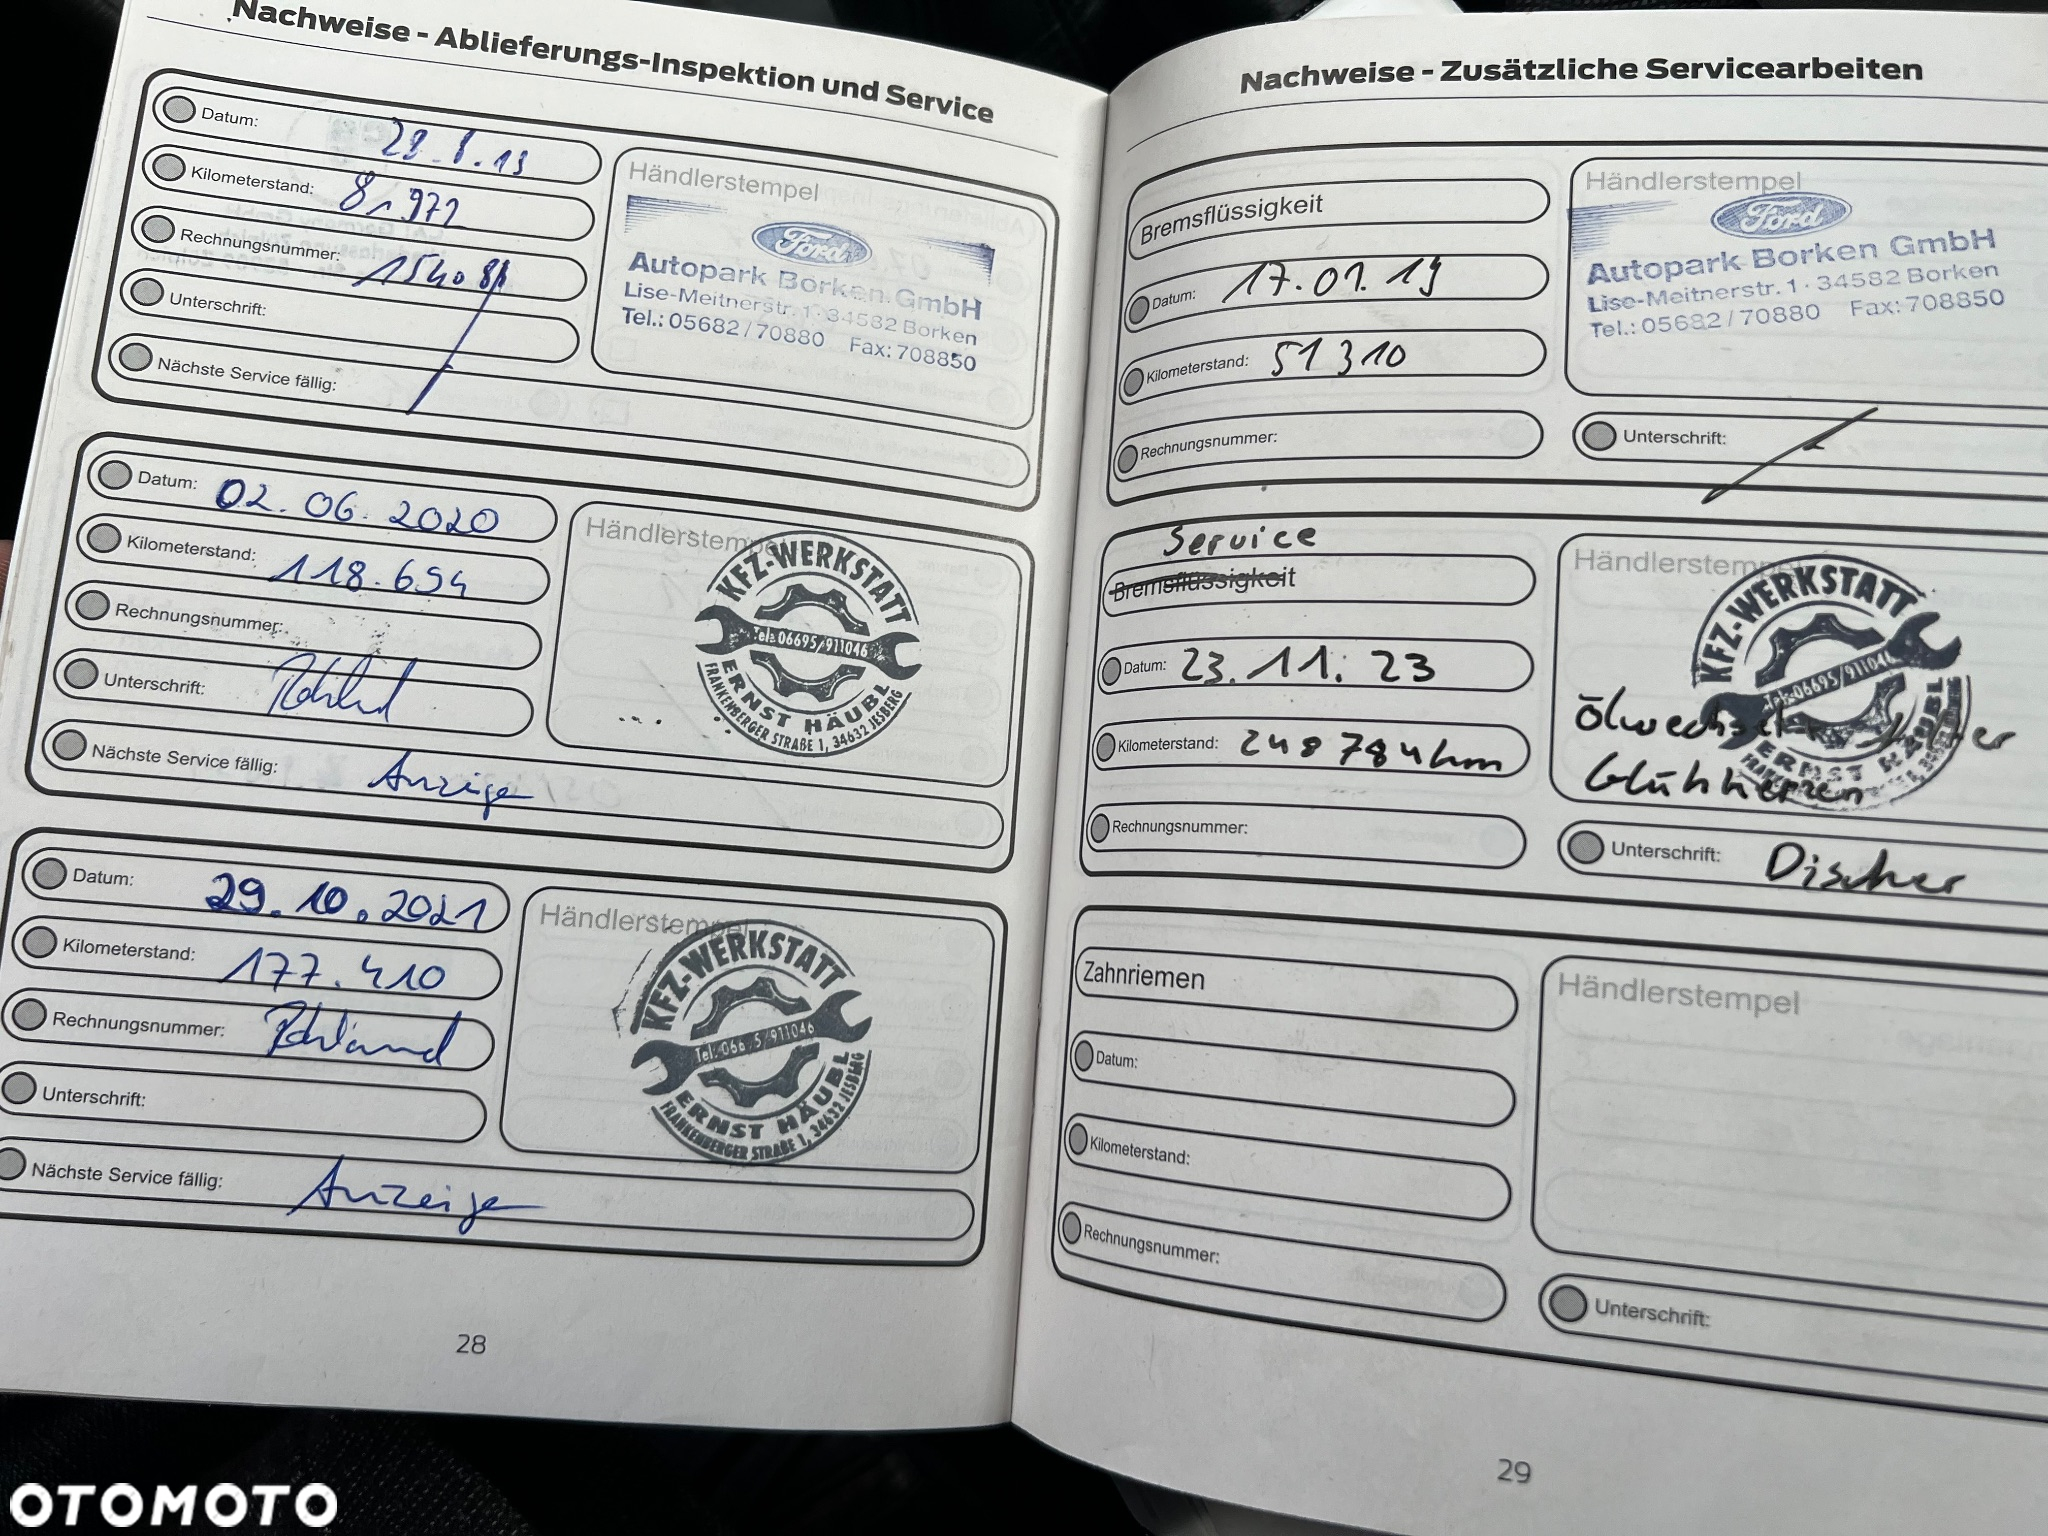 Nachweise - Ablieferungs-Inspektion und Service
Datum: 29.8.19
Kilometerstand: 81972
Rechnungsnummer:
Unterschrift:
Nächste Service fällig:
Händlerstempel
Ford
Autopark Borken GmbH
Lise-Meitnerstr. 1 · 34582 Borken
Tel.: 05682/70880 Fax: 708850
Datum: 02.06.2020
Kilometerstand: 118.654
Rechnungsnummer:
Unterschrift:
Nächste Service fällig: Anzeige
Händlerstempel
KFZ-WERKSTATT
Tel. 06695/911046
ERNST HÄUBL
FRANKENBERGER STRAßE 1, 34632 JESBERG
Datum: 29.10.2021
Kilometerstand: 177.410
Rechnungsnummer:
Unterschrift:
Nächste Service fällig: Anzeige
Händlerstempel
KFZ-WERKSTATT
Tel. 066 5/911046
ERNST HÄUBL
FRANKENBERGER STRAßE 1, 34632 JESBERG
28
Nachweise - Zusätzliche Servicearbeiten
Bremsflüssigkeit
Datum: 17.01.19
Kilometerstand: 51310
Rechnungsnummer:
Händlerstempel
Ford
Autopark Borken GmbH
Lise-Meitnerstr. 1 · 34582 Borken
Tel.: 05682/70880 Fax: 708850
Unterschrift:
Service
Bremsflüssigkeit
Datum: 23.11.23
Kilometerstand: 248784km
Rechnungsnummer:
Händlerstempel
KFZ-WERKSTATT
Tel. 06695/911046
ERNST HÄUBL
Ölwechsel
Glühkerzen
Unterschrift: Discher
Zahnriemen
Datum:
Kilometerstand:
Rechnungsnummer:
Händlerstempel
Unterschrift:
29
OTOMOTO